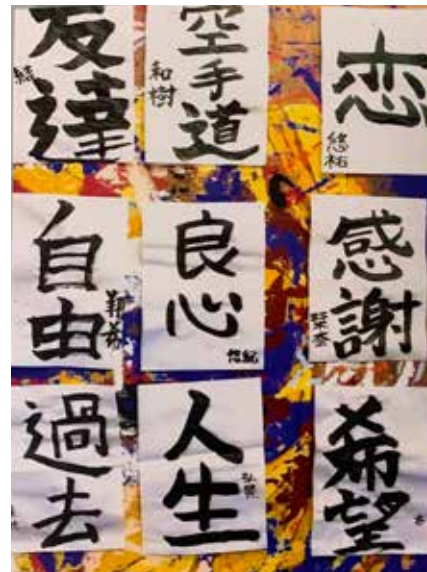 友達
空手道
和樹
恋
悠祐
自由
良心
悠祐
感謝
過去
人生
希望